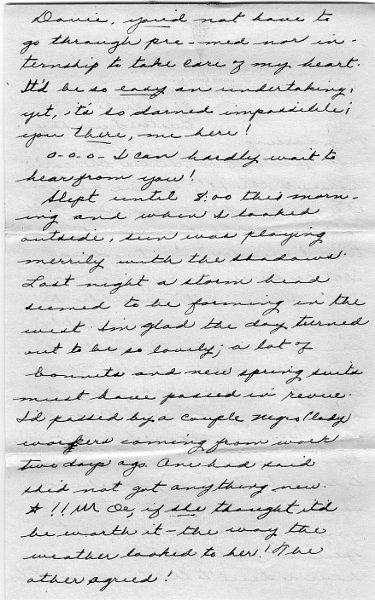 Davie, you'd not have to
go through pre-med nor in-
ternship to take care of my heart.
It'd be so easy an undertaking,
yet, it's so darned impossible;
you there, me here!
o-o-o- I can hardly wait to
hear from you!
Slept until 8:00 this morn-
ing and when I looked
outside, sun was playing
merrily with the shadows.
Last night a storm head
seemed to be forming in the
west. I'm glad the day turned
out to be so lovely; a lot of
bonnets and new spring suits
must have passed in revue.
I'd passed by a couple negro (lady
workers coming from work
two days ago. One had said
she'd not got anything new.
if she thought it'd
be worth it - the way the
weather looked to her! The
other agreed!